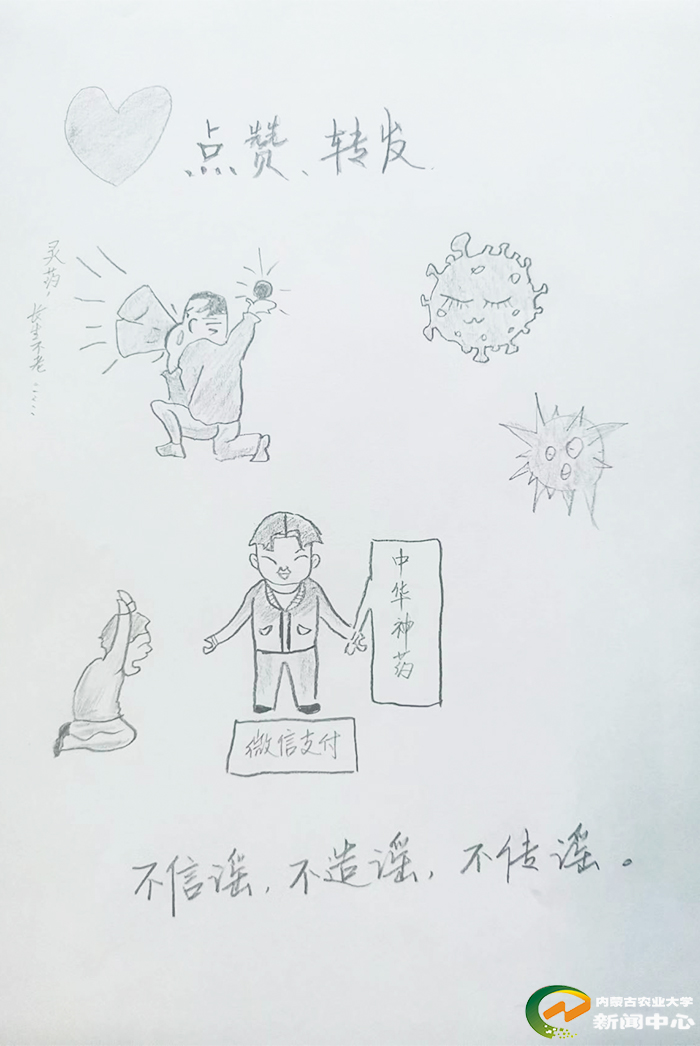 点赞、转发
灵药，长生不老……
中华神药
微信支付
不信谣，不造谣，不传谣。
内蒙古农业大学
新闻中心